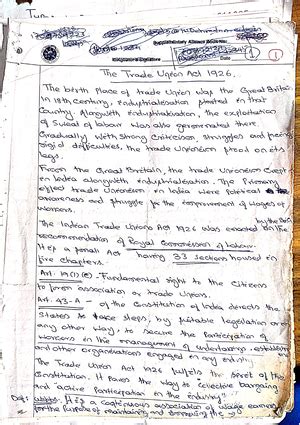 The Trade Union Act 1926.
The birth place of trade Union was the Great Britain
in 18th century, industrialisation started in that
country. Alongwith industrialisation, the exploitation
of Sweat of labour was also germinated there.
Gradually with strong criticism struggles and facing
rigid difficulties, the trade Unionism stood on its
legs.
From the Great Britain, the trade Unionism crept
in India alongwith industrialisation. The Primary
effect trade Unionism in India were Political
awareness and struggle for the improvement of wages of
workers.
by the British
The Indian Trade Unions Act 1926 was enacted on the
recommendation of Royal Commission of labour.
It is a small Act having 33 sections housed in
five chapters.
Art. 19(1)(c) - Fundamental right to the Citizens
to form association or trade Unions.
Art. 43-A - of the Constitution of India directs the
States to take steps, by suitable legislation or
any other way, to secure the Participation of
workers in the management of undertakings, establish
and other organisations engaged in any industry
The Trade Union Act 1926 fulfils the spirit of the
Constitution. It Paves the way to collective bargaining
and active Participation in the industry.
Def: It is a continuous association of wage earners
for the purpose of maintaining and improving the